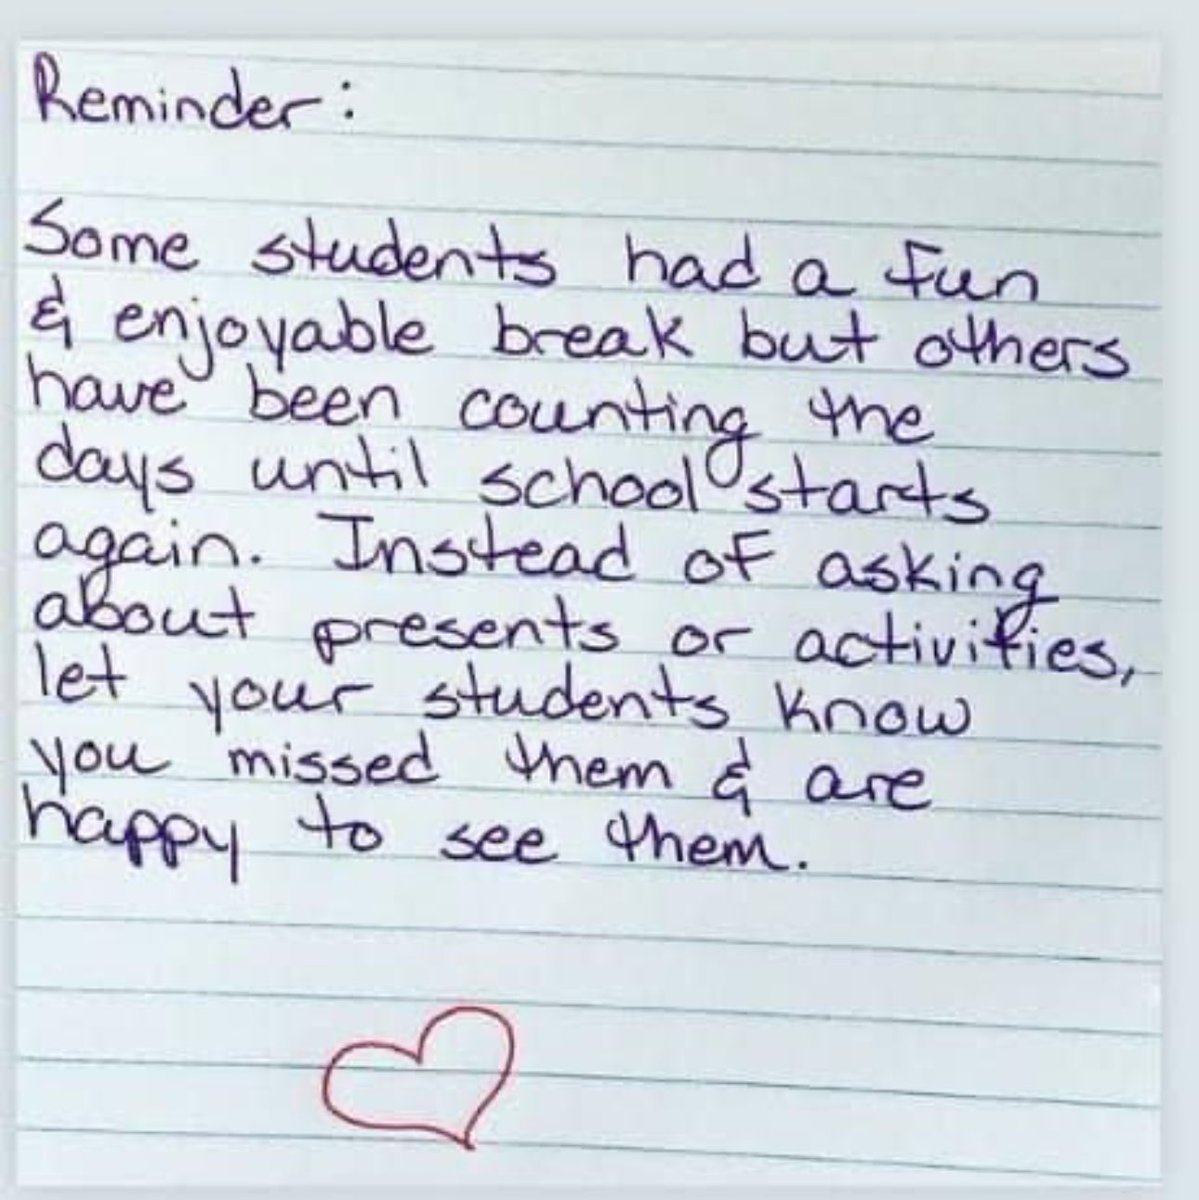 Reminder:
Some students had a fun
& enjoyable break but others
have been counting the
days until school starts
again. Instead of asking
about presents or activities,
let your students know
you missed them & are
happy to see them.